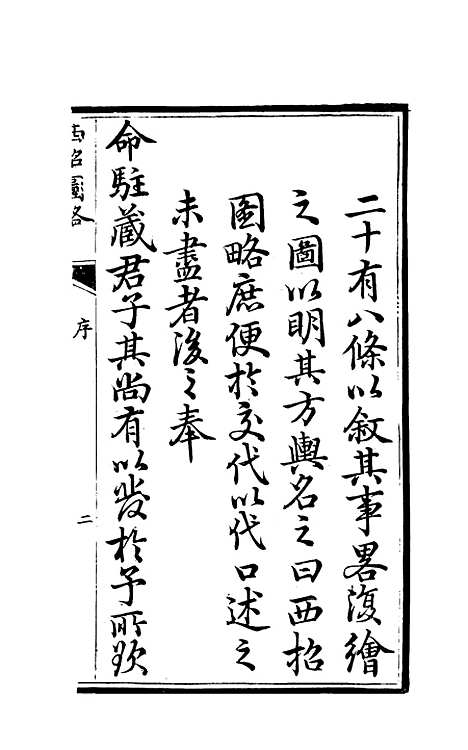 二十有八條以叙其事畧復繪
之圖以明其方輿名之曰西招
圖略庶便於交代以代口述之
未盡者後之奉
命駐藏君子其尚有以發於予所
西招圖略
序
二